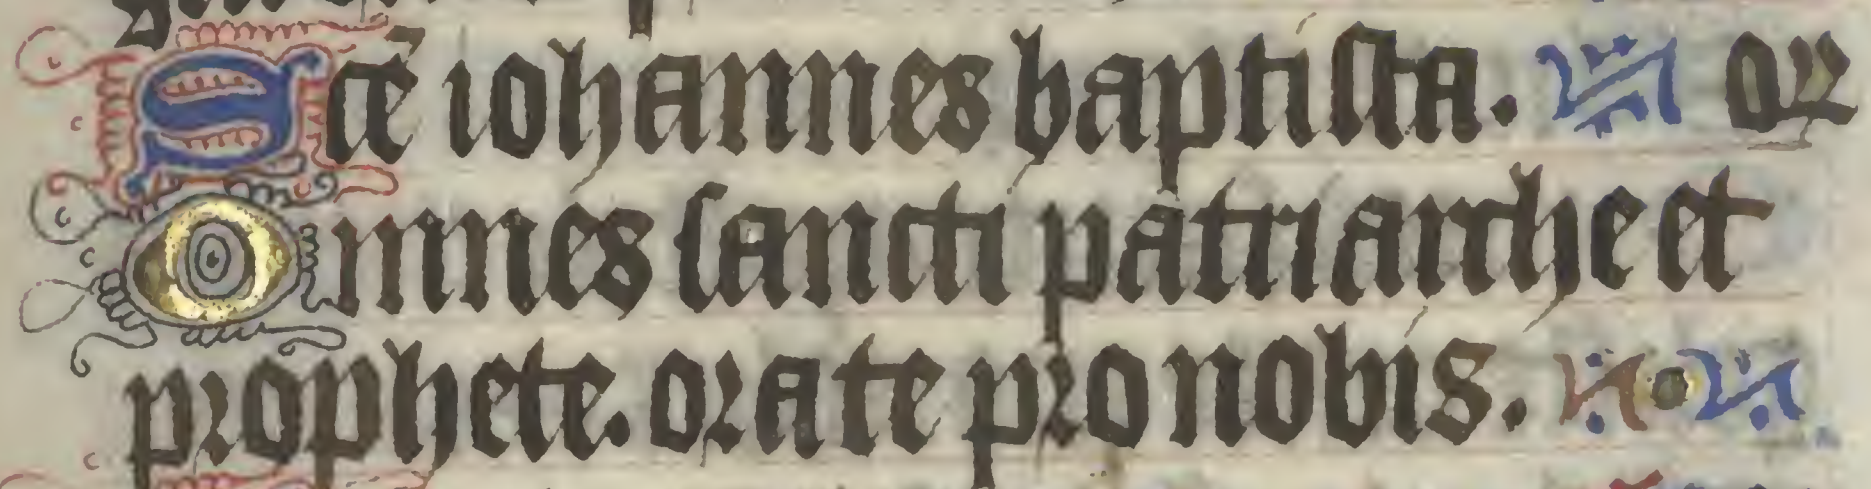 Sce̅ iohannes baptista. oꝝ
Omnes sancti patriarche et
prophete. orate pro nobis.